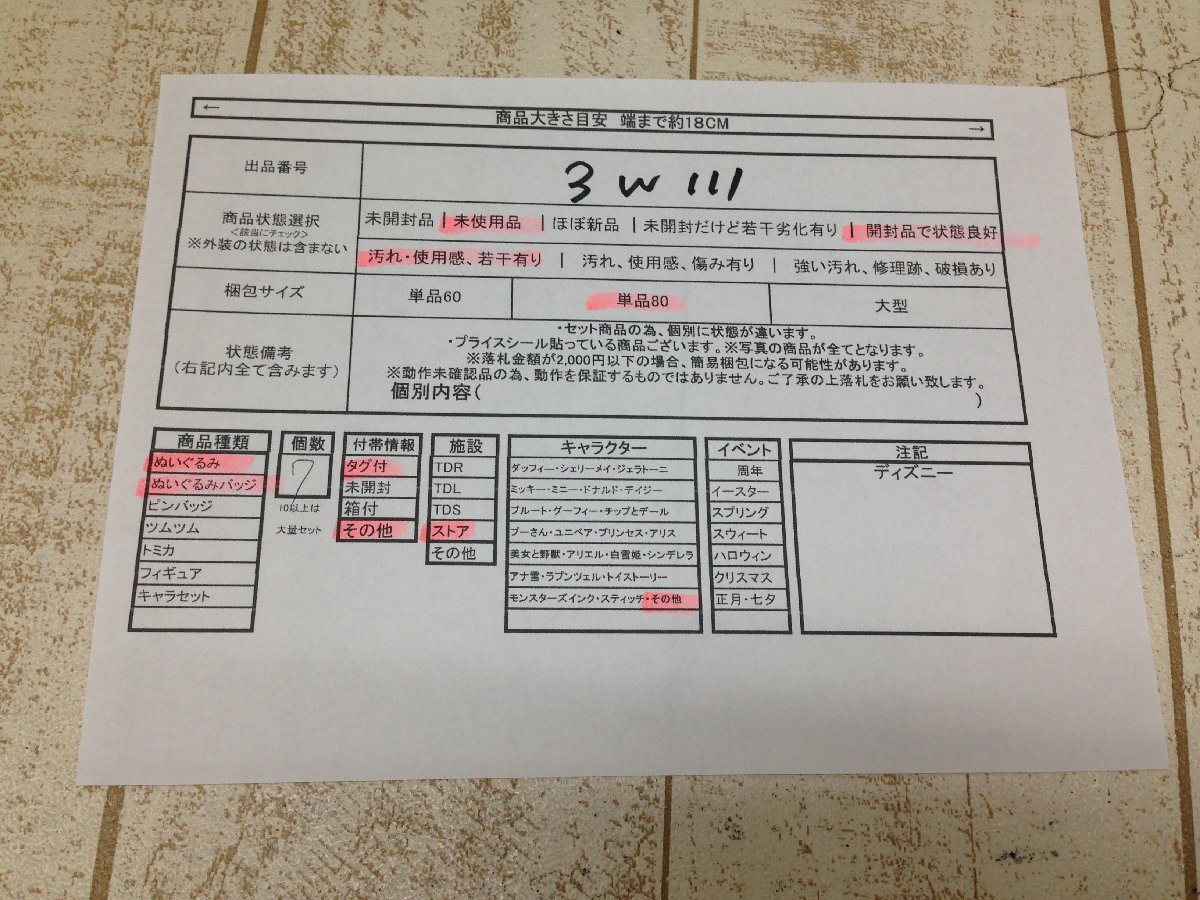 ← 商品大きさ目安 端まで約18CM →
出品番号 3W111
商品状態選択
<該当にチェック>
※外装の状態は含まない
未開封品 | 未使用品 | ほぼ新品 | 未開封だけど若干劣化有り | 開封品で状態良好
汚れ・使用感、若干有り | 汚れ、使用感、傷み有り | 強い汚れ、修理跡、破損あり
梱包サイズ 単品60 単品80 大型
状態備考
(右記内全て含みます)
・セット商品の為、個別に状態が違います。
・プライスシール貼っている商品ございます。※写真の商品が全てとなります。
※落札金額が2,000円以下の場合、簡易梱包になる可能性があります。
※動作未確認品の為、動作を保証するものではありません。ご了承の上落札をお願い致します。
個別内容( )
商品種類
ぬいぐるみ
ぬいぐるみバッジ
ピンバッジ
ツムツム
トミカ
フィギュア
キャラセット
個数
7
10以上は
大量セット
付帯情報
タグ付
未開封
箱付
その他
施設
TDR
TDL
TDS
ストア
その他
キャラクター
ダッフィー・シェリーメイ・ジェラトーニ
ミッキー・ミニー・ドナルド・デイジー
プルート・グーフィー・チップとデール
プーさん・ユニベア・プリンセス・アリス
美女と野獣・アリエル・白雪姫・シンデレラ
アナ雪・ラプンツェル・トイストーリー
モンスターズインク・スティッチ・その他
イベント
周年
イースター
スプリング
スウィート
ハロウィン
クリスマス
正月・七夕
注記
ディズニー